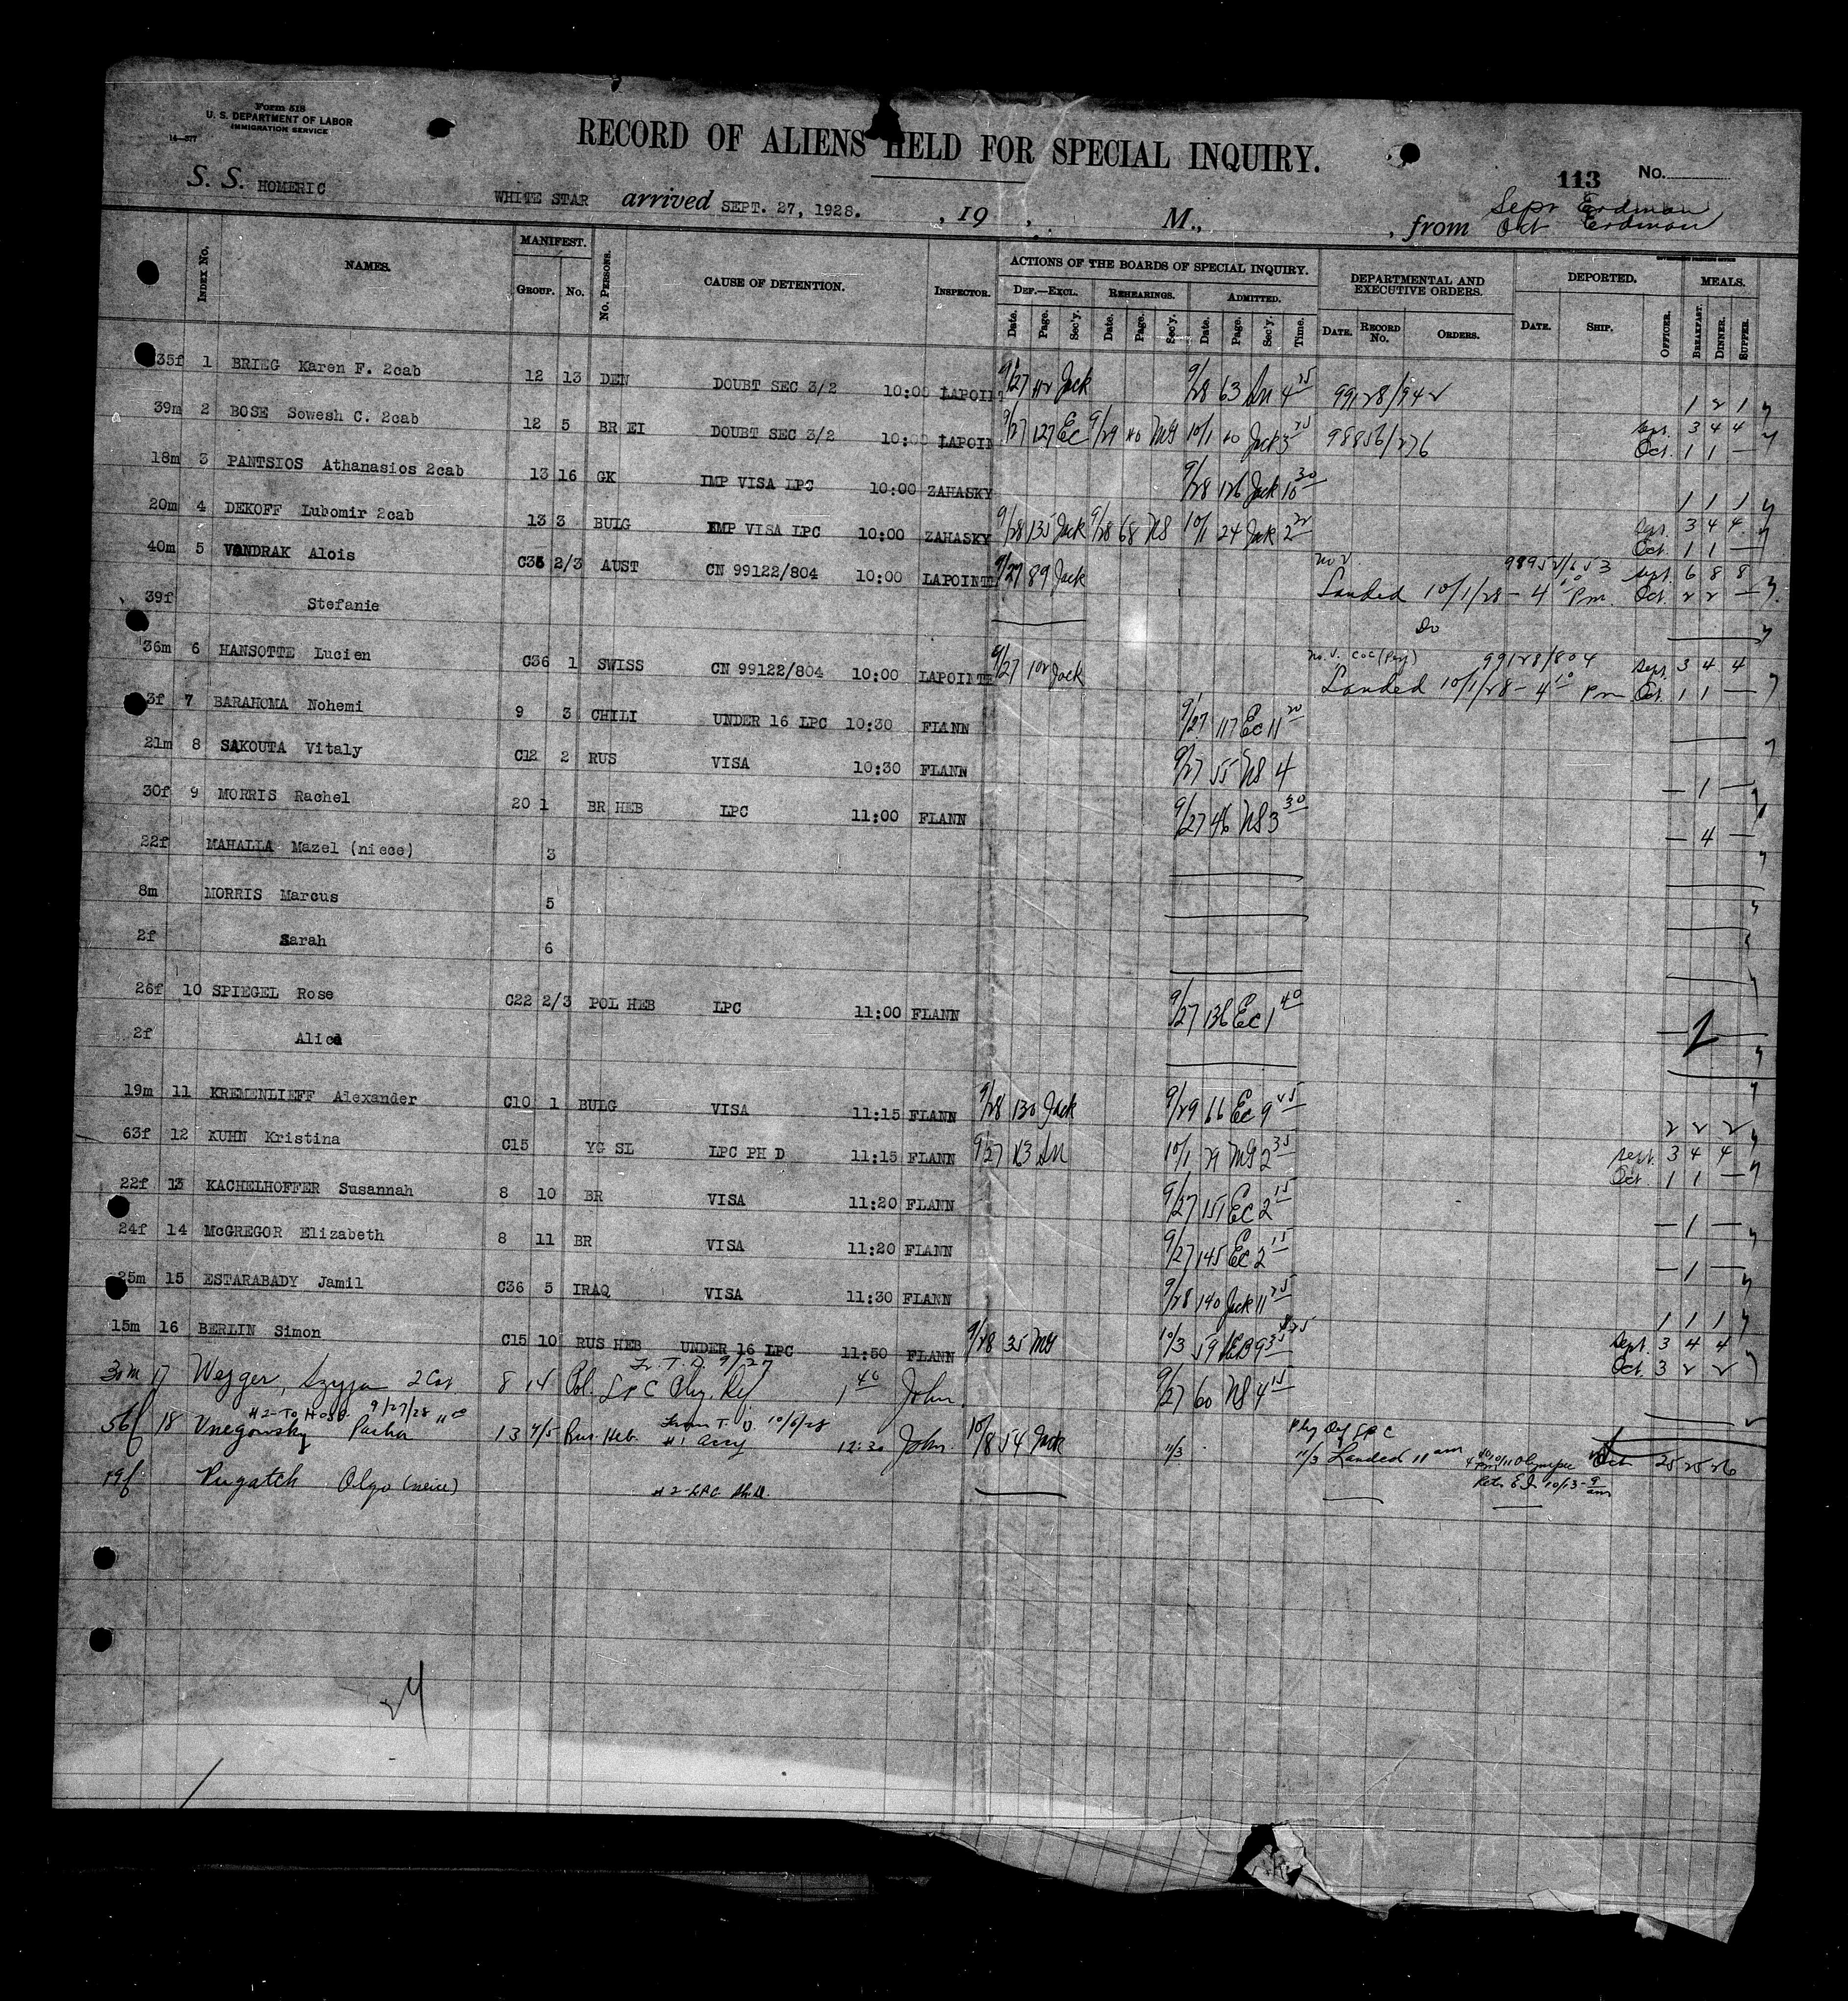 Form 518
U. S. DEPARTMENT OF LABOR
IMMIGRATION SERVICE
14—377
RECORD OF ALIENS HELD FOR SPECIAL INQUIRY.
113 No.
S. S. HOMERIC WHITE STAR arrived SEPT. 27, 1928. , 19 , M., , from Sept Erdman
Oct Erdman
Index No. NAMES. MANIFEST. Group. No. No. Persons. CAUSE OF DETENTION. Inspector. ACTIONS OF THE BOARDS OF SPECIAL INQUIRY. Def.—Excl. Date. Page. Sec'y. Rehearings. Date. Page. Sec'y. Admitted. Date. Page. Sec'y. Time. DEPARTMENTAL AND EXECUTIVE ORDERS. Date. Record No. Orders. DEPORTED. Date. Ship. Officer. MEALS. Breakfast. Dinner. Supper.
35f 1 BRIEG Karen F. 2cab 12 13 DEN DOUBT SEC 3/2 10:00 LAPOINT 9/27 112 Jack 9/28 63 4 25 99128/942 1 2 1
39m 2 BOSE Sowesh C. 2cab 12 5 BR EI DOUBT SEC 3/2 10:00 LAPOIN 9/27 127 EC 9/29 MG 10/1 Jack 3 98856/276 Sept. 3 4 4
Oct. 1 1 —
18m 3 PANTSIOS Athanasios 2cab 13 16 GK IMP VISA LPC 10:00 ZAHASKY 9/28 126 Jack 10 30 1 1 1
20m 4 DEKOFF Lubomir 2cab 13 3 BULG IMP VISA LPC 10:00 ZAHASKY 9/28 135 Jack 9/28 68 NS 10/1 24 Jack 2 Sept. 3 4 4
Oct. 1 1 —
40m 5 VONDRAK Alois C35 2/3 AUST CN 99122/804 10:00 LAPOINTE 9/27 89 Jack Sept. 6 8 8
Landed 10/1/28 - 4 10 Pm. Oct. 2 2 —
39f Stefanie Do
36m 6 HANSOTTE Lucien C36 1 SWISS CN 99122/804 10:00 LAPOINTE 9/27 102 Jack 99128/804 Sept. 3 4 4
Landed 10/1/28 - 4 10 Pm Oct. 1 1 —
3f 7 BARAHOMA Nohemi 9 3 CHILI UNDER 16 LPC 10:30 FLANN 9/27 117 EC 11 20
21m 8 SAKOUTA Vitaly C12 2 RUS VISA 10:30 FLANN 9/27 55 NS 4 — 1 —
30f 9 MORRIS Rachel 20 1 BR HEB LPC 11:00 FLANN 9/27 46 NS 3 30 — 4 —
22f MAHALLA Mazel (niece) 3
8m MORRIS Marcus 5
2f Sarah 6
26f 10 SPIEGEL Rose C22 2/3 POL HEB LPC 11:00 FLANN 9/27 136 EC 1 40 — 2 —
2f Alice
19m 11 KREMENLIEFF Alexander C10 1 BULG VISA 11:15 FLANN 9/28 130 Jack 9/29 66 EC 9 45 2 2 2
63f 12 KUHN Kristina C15 YG SL LPC PH D 11:15 FLANN 9/27 10/1 29 MG 2 35 Sept. 3 4 4
Oct 1 1 —
22f 13 KACHELHOFFER Susannah 8 10 BR VISA 11:20 FLANN 9/27 151 EC 2 15 — 1 —
24f 14 McGREGOR Elizabeth 8 11 BR VISA 11:20 FLANN 9/27 145 EC 2 15 — 1 —
25m 15 ESTARABADY Jamil C36 5 IRAQ VISA 11:30 FLANN 9/28 140 Jack 11 25 1 1 1
15m 16 BERLIN Simon C15 10 RUS HEB UNDER 16 LPC 11:50 FLANN 9/28 35 MG 10/3 59 9 Sept. 3 4 4
Oct. 3 2 2
Fr. T. D. 9/27
30m 17 Wejger, Szyja 2 Cab 8 14 Pol. LPC Phy. Def 1 40 John 9/27 60 NS 4 15
#2-To Hosp. 9/27/28
56f 18 Vnegowsky Pasha 13 4/5 Rus. Heb. From T. D. 10/6/28 12:30 John. 10/8 54 Jack 11/3 Phy Def LPC
11/3 Landed 11 am Olympic Oct 25 25 26
Retn E I 10/13 - 9 am
19f Pugatch Olga (neice) #2-LPC Ph.D.